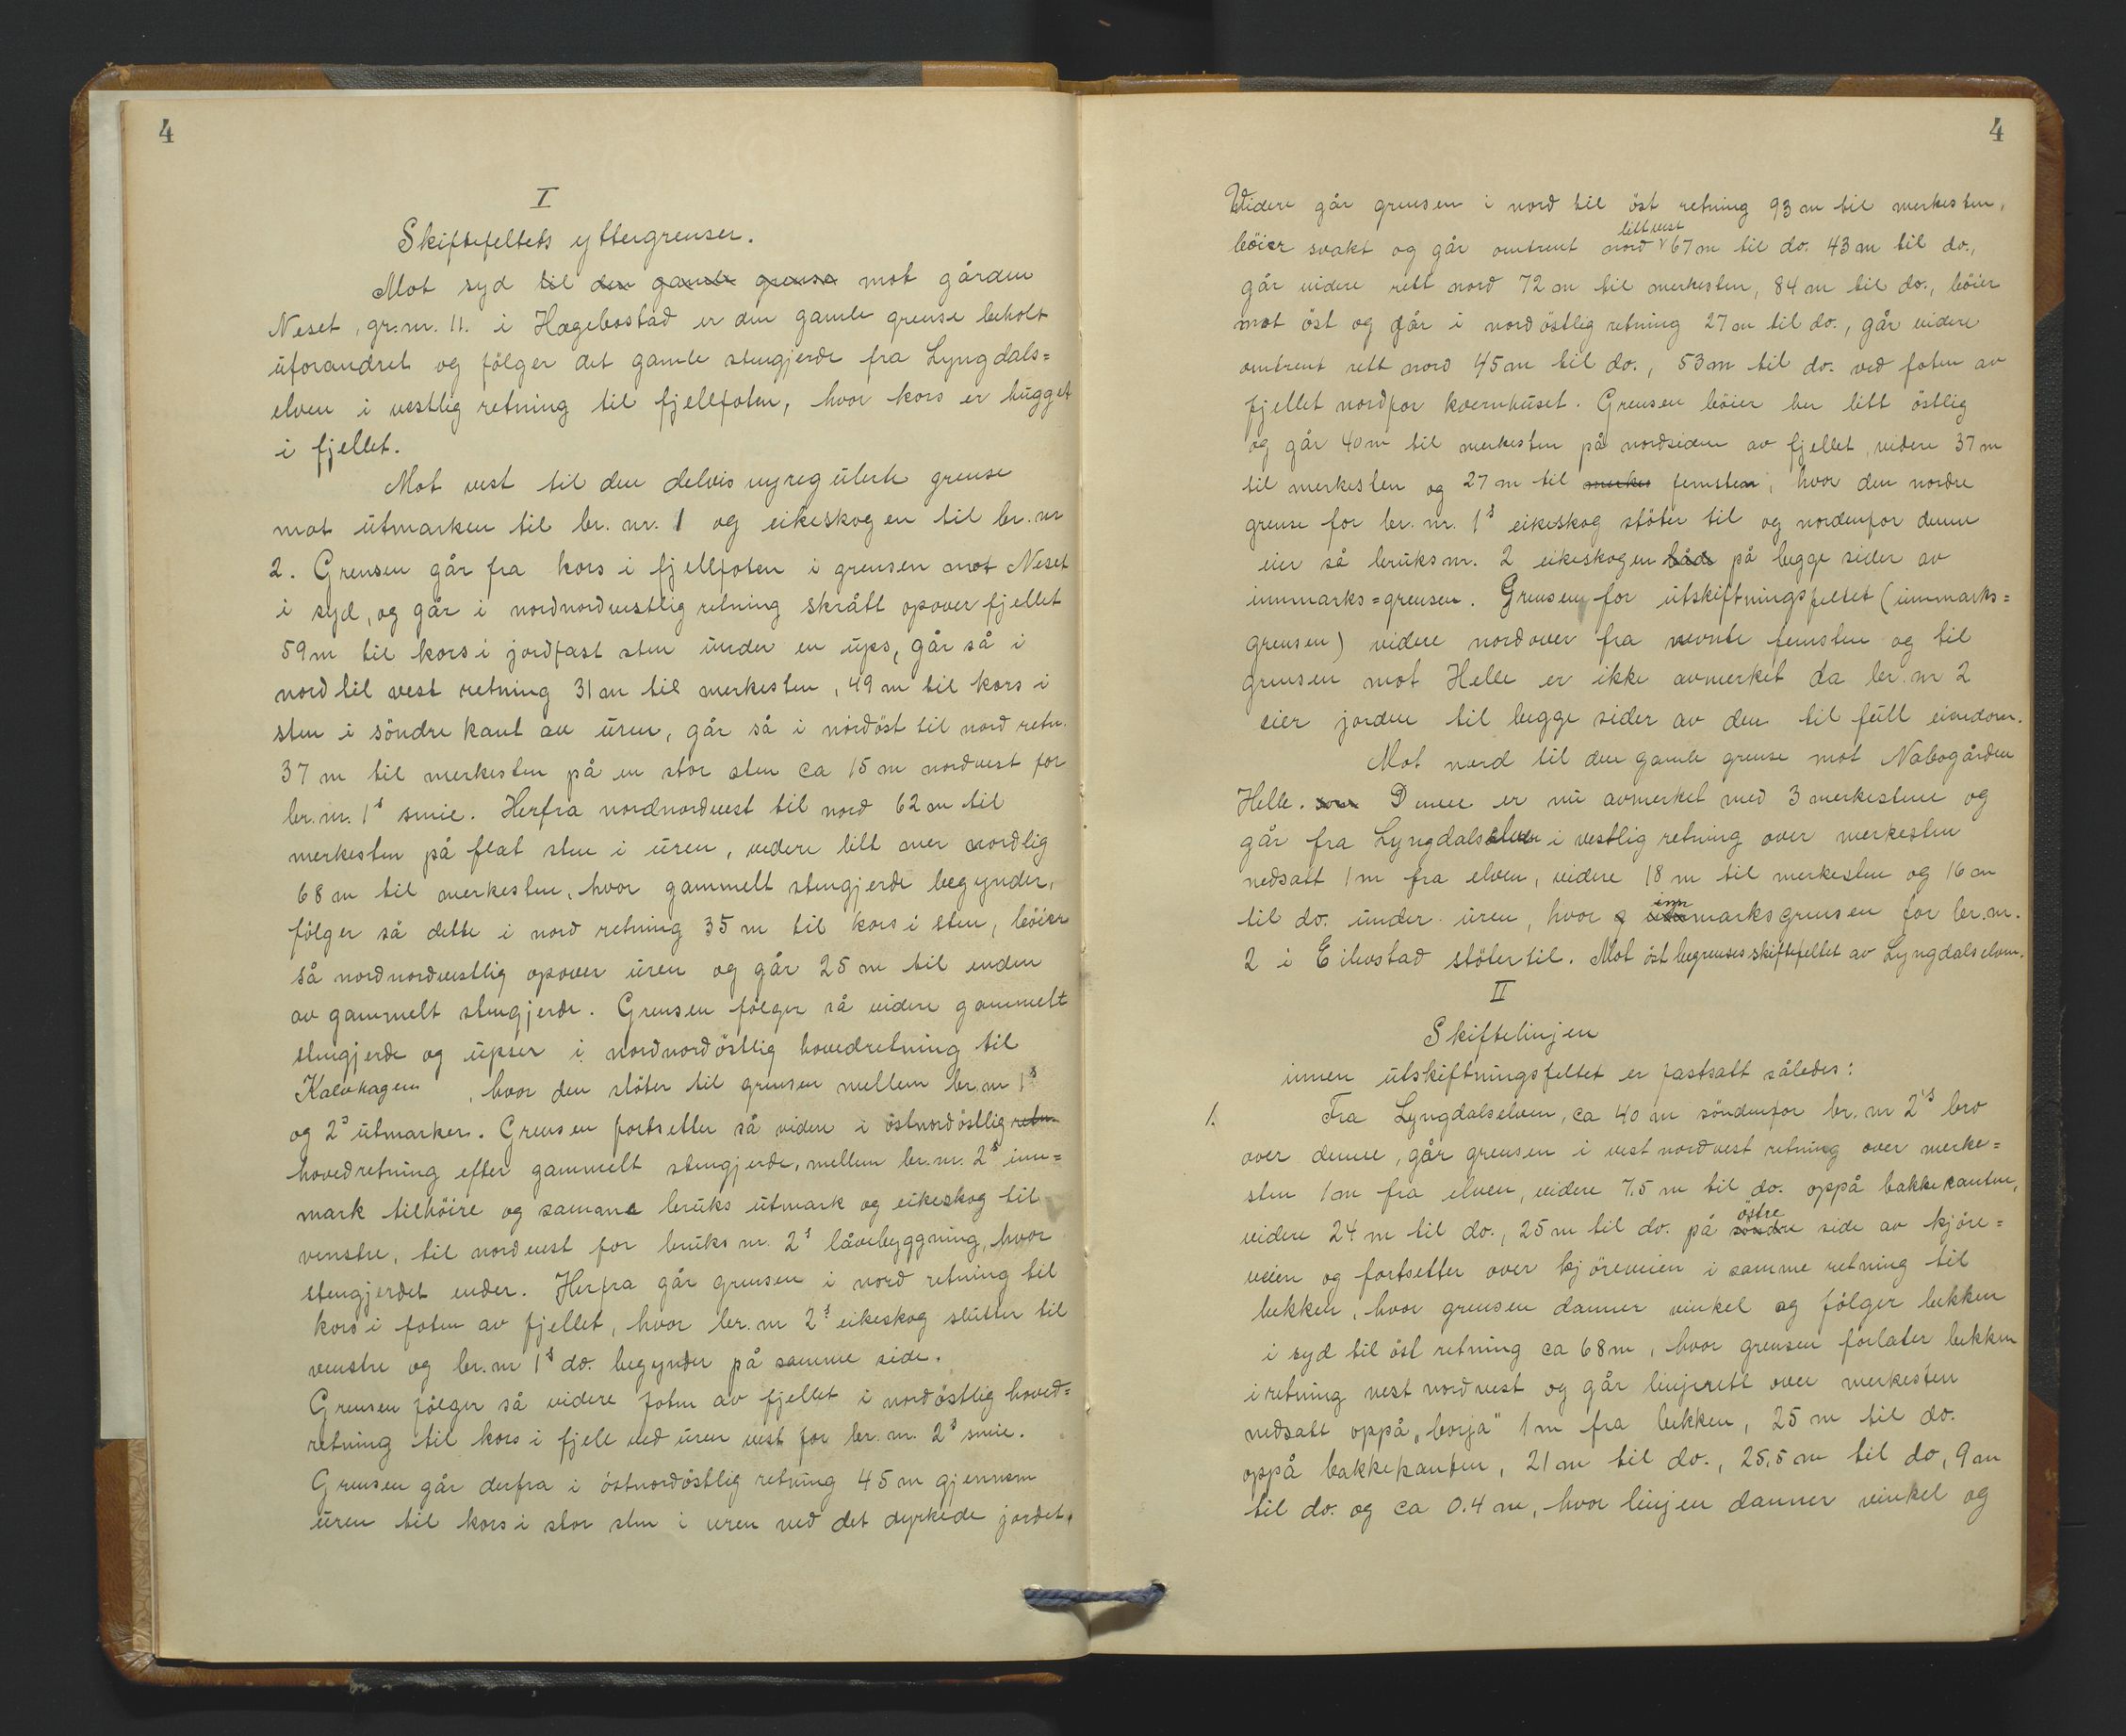 4
I
Skiftefeltets yttergrenser.
Mot syd til den gamle grense mot gården
Neset, gr.nr. 11. i Hægebostad er den gamle grense beholt
uforandret og fölger det gamle stengjerde fra Lyngdals=
elven i vestlig retning til fjellfoten, hvor kors er hugget
i fjellet.
Mot vest til den delvis nyregulerte grense
mot utmarken til br. nr. 1 og eikeskogen til br. nr
2. Grensen går fra kors i fjellfoten i grensen mot Neset
i syd, og går i nordnordvestlig retning skrått opover fjellet
59 m til kors i jordfast sten under en ups, går så i
nord til vest retning 31 m til merkesten, 49 m til kors i
sten i söndre kant av uren, går så i nordöst til nord retn.
37 m til merkesten på en stor sten ca 15 m nordvest for
br. nr. 1s smie. Herfra nordnordvest til nord 62 m til
merkesten på flat sten i uren, videre litt mer nordlig
68 m til merkesten, hvor gammelt stengjerde begynder,
fölger så dette i nord retning 35 m til kors i sten, böier
så nordnordvestlig opover uren og går 25 m til enden
av gammelt stengjerde. Grensen fölger så videre gammelt
stengjerde og upser i nordnordöstlig hovedretning til
Kalvhagen, hvor den stöter til grensen mellem br. nr 1s
og 2s utmarker. Grensen fortsetter så videre i östnordöstlig retn
hovedretning efter gammelt stengjerde, mellem br. nr. 2s inn=
mark tilhöire og samme bruks utmark og eikeskog til
venstre, til nordvest for bruks nr. 2s låvebyggning, hvor
stengjerdet ender. Herfra går grensen i nord retning til
kors i foten av fjellet, hvor br. nr 2s eikeskog slutter til
venstre og br. nr 1s do. begynder på samme side.
Grensen fölger så videre foten av fjellet i nordöstlig hoved=
retning til kors i fjell ved uren vest for br. nr. 2s smie.
Grensen går derfra i östnordöstlig retning 45 m gjennem
uren til kors i stor sten i uren ved det dyrkede jordet.
4
Videre går grensen i nord til öst retning 93 m til merkesten,
litt vest
böier svakt og går omtrent nord 67 m til do. 43 m til do.,
går videre rett nord 72 m til merkesten, 84 m til do., böier
mot öst og går i nordöstlig retning 27 m til do., går videre
omtrent rett nord 45 m til do., 53 m til do. ved foten av
fjellet nordfor kvernhuset. Grensen böier her litt östlig
og går 40 m til merkesten på nordsiden av fjellet, videre 37 m
til merkesten og 27 m til merkes femsten, hvor den nordre
grense for br. nr. 1s eikeskog stöter til og nordenfor denne
eier så bruksnr. 2 eikeskogen både på begge sider av
innmarks=grensen. Grensen for utskiftningsfeltet (innmarks=
grensen) videre nordover fra nevnte femsten og til
grensen mot Helle er ikke avmerket da br. nr 2
eier jorden til begge sider av den til full eiendom.
Mot nord til den gamle grense mot Nabogården
Helle. som Denne er nu avmerket med 3 merkestene og
går fra Lyngdalselven i vestlig retning over merkesten
nedsatt 1 m fra elven, videre 18 m til merkesten og 16 m
inn
til do. under uren, hvor g utmarksgrensen for br. nr.
2 i Eilevstad stöter til. Mot öst begrenses skiftefeltet av Lyngdalselven.
II
Skiftelinjen
innen utskiftningsfeltet er fastsatt således:
1. Fra Lyngdalselven, ca 40 m söndenfor br. nr 2's bro
over denne, går grensen i vest nordvest retning over merke=
sten 1 m fra elven, videre 7.5 m til do. oppå bakkekanten,
östre
videre 24 m til do., 25 m til do. på söndre side av kjöre=
veien og fortsetter over kjöreveien i samme retning til
bekken, hvor grensen danner vinkel og fölger bekken
i syd til öst retning ca 68 m, hvor grensen forlater bekken
i retning vest nordvest og går linjerett over merkesten
nedsatt oppå „borja" 1 m fra bekken, 25 m til do.
oppå bakkekanten, 21 m til do., 25,5 m til do, 9 m
til do. og ca 0.4 m, hvor linjen danner vinkel og